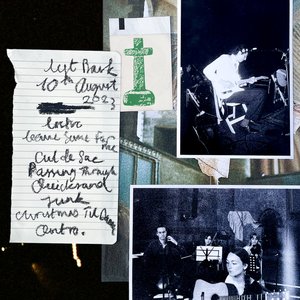 Left Bank
10th August
2023
Intro
Leave Some For
Me
Cul de Sac
Passing Through
Quicksand
Junk
Christmas Til
Outro.